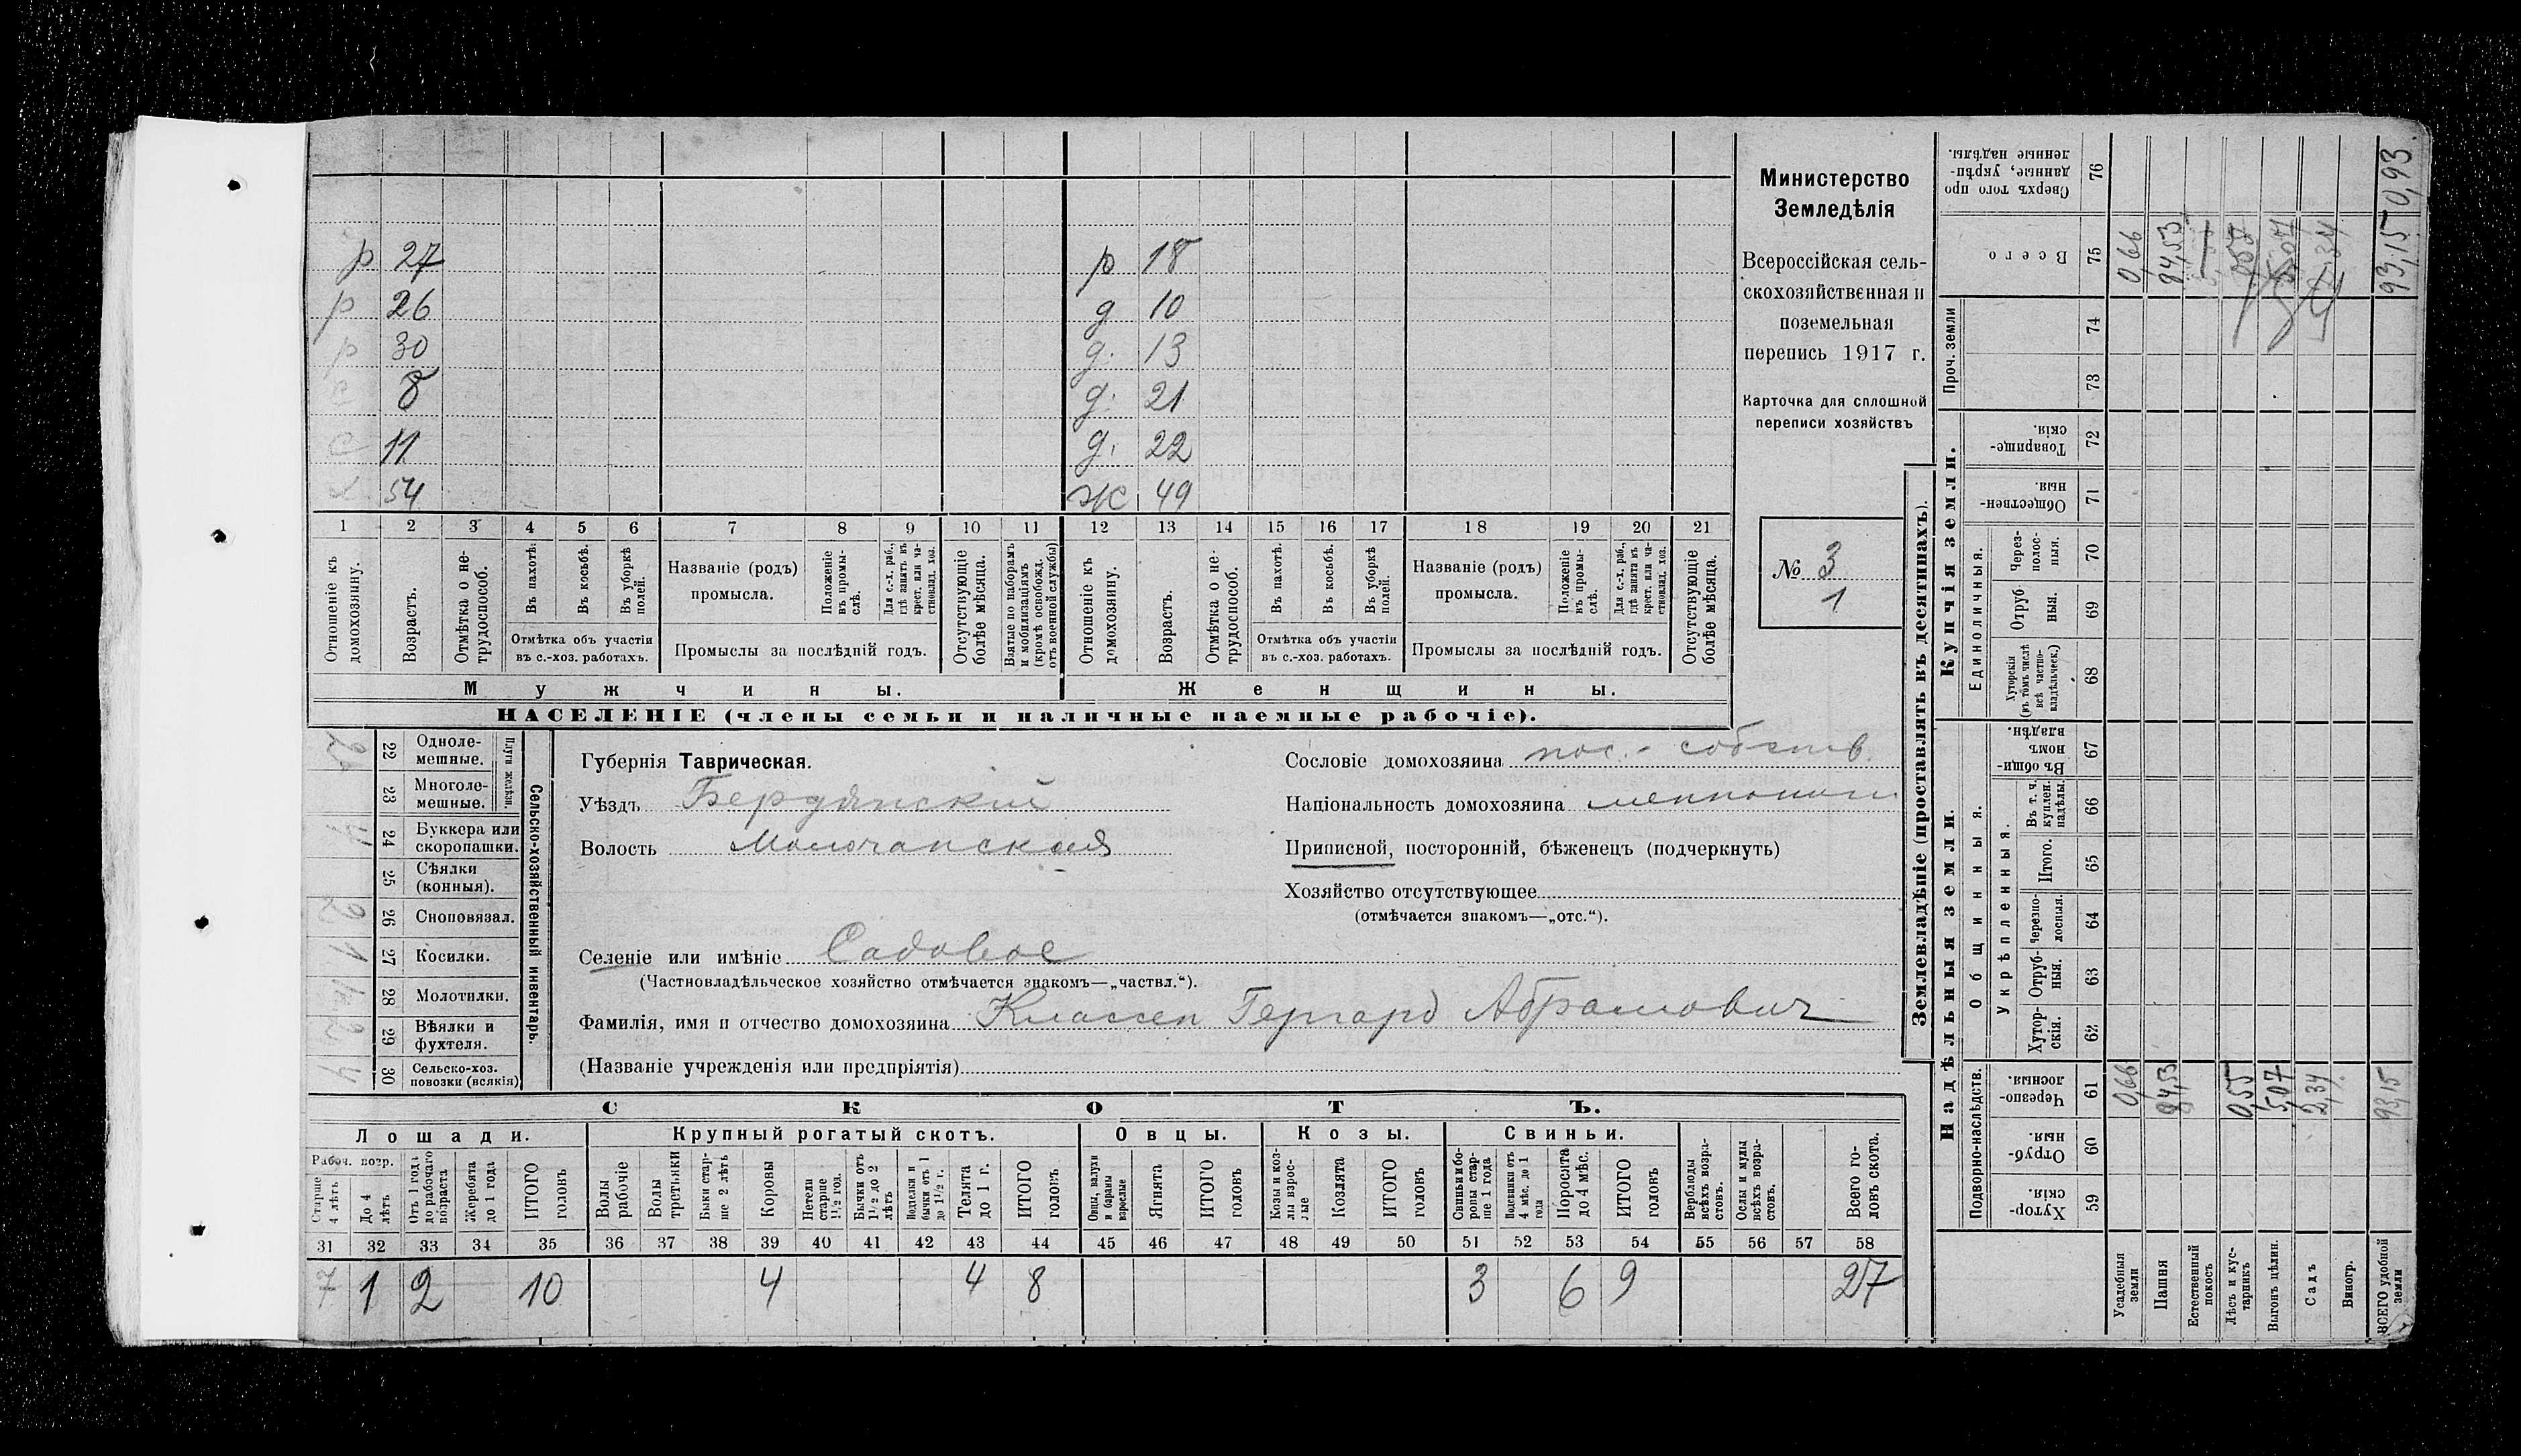 р 27 р 18
р 26 д 10
р 30 д. 13
с 8 д. 21
с 11 д. 22
54 ж 49
1 2 3 4 5 6 7 8 9 10 11 12 13 14 15 16 17 18 19 20 21
Отношеніе къ домохозяину.
Возрастъ.
Отмѣтка о не-
трудоспособ.
Въ пахотѣ.
Въ косьбѣ.
Въ уборкѣ
полей.
Отмѣтка объ участіи
въ с.-хоз. работахъ.
Названіе (родъ)
промысла.
Положеніе
въ промы-
слѣ.
Для с.-х. раб.,
гдѣ занятъ въ
крест. или ча-
стновлад. хоз.
Промыслы за послѣдній годъ.
Отсутствующіе
болѣе мѣсяца.
Взятые по наборамъ
и мобилизаціямъ
(кромѣ освобожд.
отъ военной службы)
Отношеніе къ
домохозяину.
Возрастъ.
Отмѣтка о не-
трудоспособ.
Въ пахотѣ.
Въ косьбѣ.
Въ уборкѣ
полей.
Отмѣтка объ участіи
въ с.-хоз. работахъ.
Названіе (родъ)
промысла.
Положеніе
въ промы-
слѣ.
Для с.-х. раб.,
гдѣ занята въ
крест. или ча-
стновлад. хоз.
Промыслы за послѣдній годъ.
Отсутствующіе
болѣе мѣсяца.
Мужчины. Женщины.
НАСЕЛЕНІЕ (члены семьи и наличные наемные рабочіе).
Министерство
Земледѣлія
Всероссійская сель-
скохозяйственная и
поземельная
перепись 1917 г.
Карточка для сплошной
переписи хозяйствъ
№ 3
1
22 Одноле-
мешные.
23 Многоле-
мешные.
Плуги желѣзн.
24 Буккера или
скоропашки.
25 Сѣялки
(конныя).
26 Сноповязал.
27 Косилки.
28 Молотилки.
29 Вѣялки и
фухтеля.
30 Сельско-хоз.
повозки (всякія)
Сельско-хозяйственный инвентарь.
Губернія Таврическая.
Уѣздъ Бердянскій
Волость Молочанская
Селеніе или имѣніе Садовое
(Частновладѣльческое хозяйство отмѣчается знакомъ—„частвл.“).
Фамилія, имя и отчество домохозяина Классен Гергард Абрамович
(Названіе учрежденія или предпріятія)
Сословіе домохозяина пос.- собств.
Національность домохозяина меннонит
Приписной, посторонній, бѣженецъ (подчеркнуть)
Хозяйство отсутствующее
(отмѣчается знакомъ—„отс.“).
СКОТЪ.
Лошади. Крупный рогатый скотъ. Овцы. Козы. Свиньи.
Рабоч. возр.
Старше
4 лѣтъ
До 4
лѣтъ
Отъ 1 года
до рабочаго
возраста
Жеребята
до 1 года
ИТОГО
головъ
Волы
рабочіе
Волы
третьяки
Быки стар-
ше 2 лѣтъ
Коровы
Нетели
старше
1½ год.
Бычки отъ
1½ до 2
лѣтъ
Подтелки и
бычки отъ 1
до 1½ г.
Телята
до 1 г.
ИТОГО
головъ
Овцы, валухи
и бараны
взрослые
Ягнята
ИТОГО
головъ
Козы и коз-
лы взрос-
лые
Козлята
ИТОГО
головъ
Свиньи и бо-
ровы стар-
ше 1 года
Подсвинки отъ
4 мѣс. до 1
года
Поросята
до 4 мѣс.
ИТОГО
головъ
Верблюды
всѣхъ возра-
стовъ.
Ослы и мулы
всѣхъ возра-
стовъ.
Всего го-
ловъ скота.
31 32 33 34 35 36 37 38 39 40 41 42 43 44 45 46 47 48 49 50 51 52 53 54 55 56 57 58
7 1 2 10 4 4 8 3 6 9 27
Землевладѣніе (проставлять въ десятинахъ).
Надѣльныя земли. Купчія земли.
Проч. земли
Подворно-наслѣдств.
Общинныя.
Укрѣпленныя.
Единоличныя.
Хутор-
скія. 59
Отруб-
ныя. 60
Черезпо-
лосныя. 61
Хутор-
скія. 62
Отруб-
ныя. 63
Черезпо-
лосныя. 64
Итого. 65
Въ т. ч.
куплен.
надѣлы. 66
Въ общин-
номъ
владѣн. 67
Хуторскія
(въ томъ числѣ
всѣ частно-
владѣльческ.) 68
Отруб
ныя. 69
Через-
полос-
ныя. 70
Обществен-
ныя. 71
Товарище-
скія. 72
73
74
Всего 75
Сверхъ того про
данные, укрѣп-
ленные надѣлы. 76
Усадебныя
земли 0,66 0,66
Пашня 84,53 84,53
Естественный
покосъ
Лѣсъ и кус-
тарникъ 0,55
Выгонъ цѣлин. 5,07
Садъ 2,34
Виногр.
ВСЕГО удобной
земли 93,15 93,15 0,93